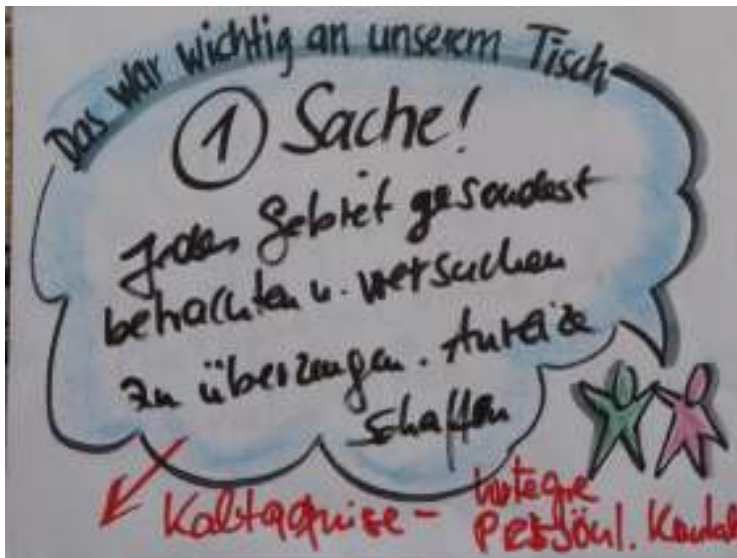 Das war wichtig an unserem Tisch
1 Sache!
Jedes Gebiet gesondest
betrachten u. versuchen
zu überzeugen. Anreize
schaffen
Kaltaquise -
Persönl. Kontak